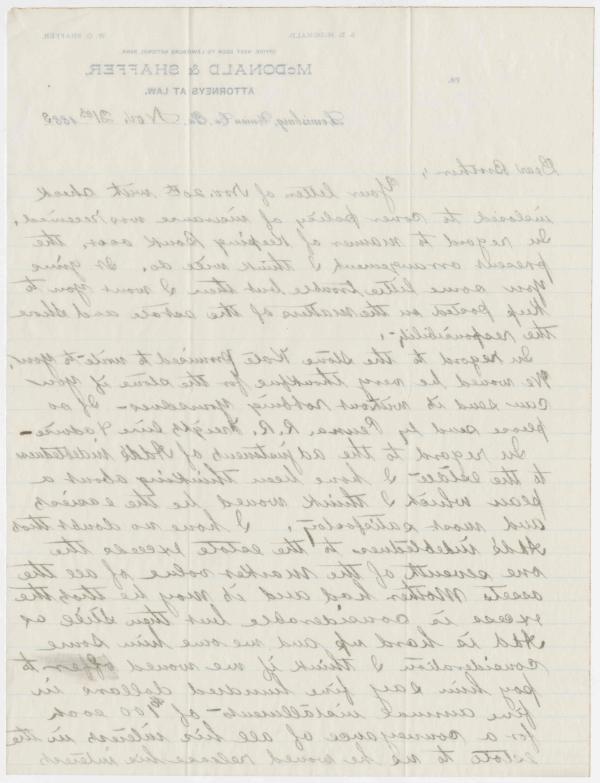 A. D. McDONALD. W. O. SHAFFER.
OFFICE NEXT DOOR TO LEWISBURG NATIONAL BANK.
McDONALD & SHAFFER,
ATTORNEYS AT LAW.
Lewisburg, Union Co. Pa. Nov. 21st 1883
Dear Brother,
Your letter of Nov. 20th with check
inclosed to cover policy of insurance was received.
In regard to manner of keeping Bank acct. the
present arrangement I think will do. It gives
you some little trouble but then I want you to
keep posted on the matters of the estate and share
the responsibility.
In regard to the stone Kate promised to write to you.
We would be very thankful for the stone if you
can send it without robbing yourselves- If so
please send by Penna. R.R. freight line &
In regard to the adjustment of Add's indebtedness
to the estate- I have been thinking about a
plan which I think would be the easiest
and most satisfactory. I have no doubt that
Add's indebtedness to the estate exceeds the
one seventh of the market value of all the
assets Mother had and it may be that the
excess is considerable but then still as
Add is hard up and we owe him some
consideration I think if we would offer to
pay him say five hundred dollars in
five annual installments- of $100 each
for a conveyance of all his interest in the
estate to us he would release his interest